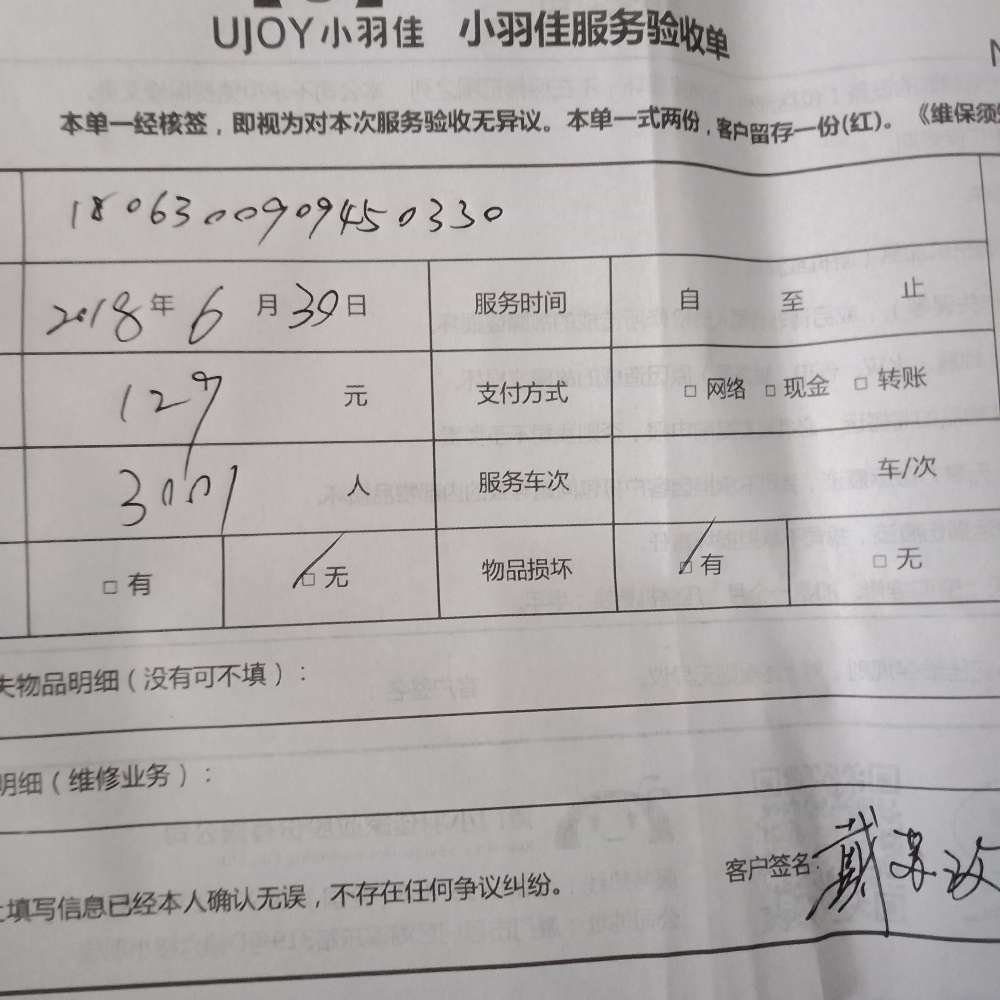 UJOY小羽佳 小羽佳服务验收单
N
本单一经核签，即视为对本次服务验收无异议。本单一式两份，客户留存一份(红)。《维保须
1806300909450330
2018年6月30日 服务时间 自 至 止
129 元 支付方式 □ 网络 □ 现金 □ 转账
3001 人 服务车次 车/次
□ 有 □ 无 物品损坏 □ 有 □ 无
失物品明细（没有可不填）：
明细（维修业务）：
客户签名:戴
上填写信息已经本人确认无误，不存在任何争议纠纷。